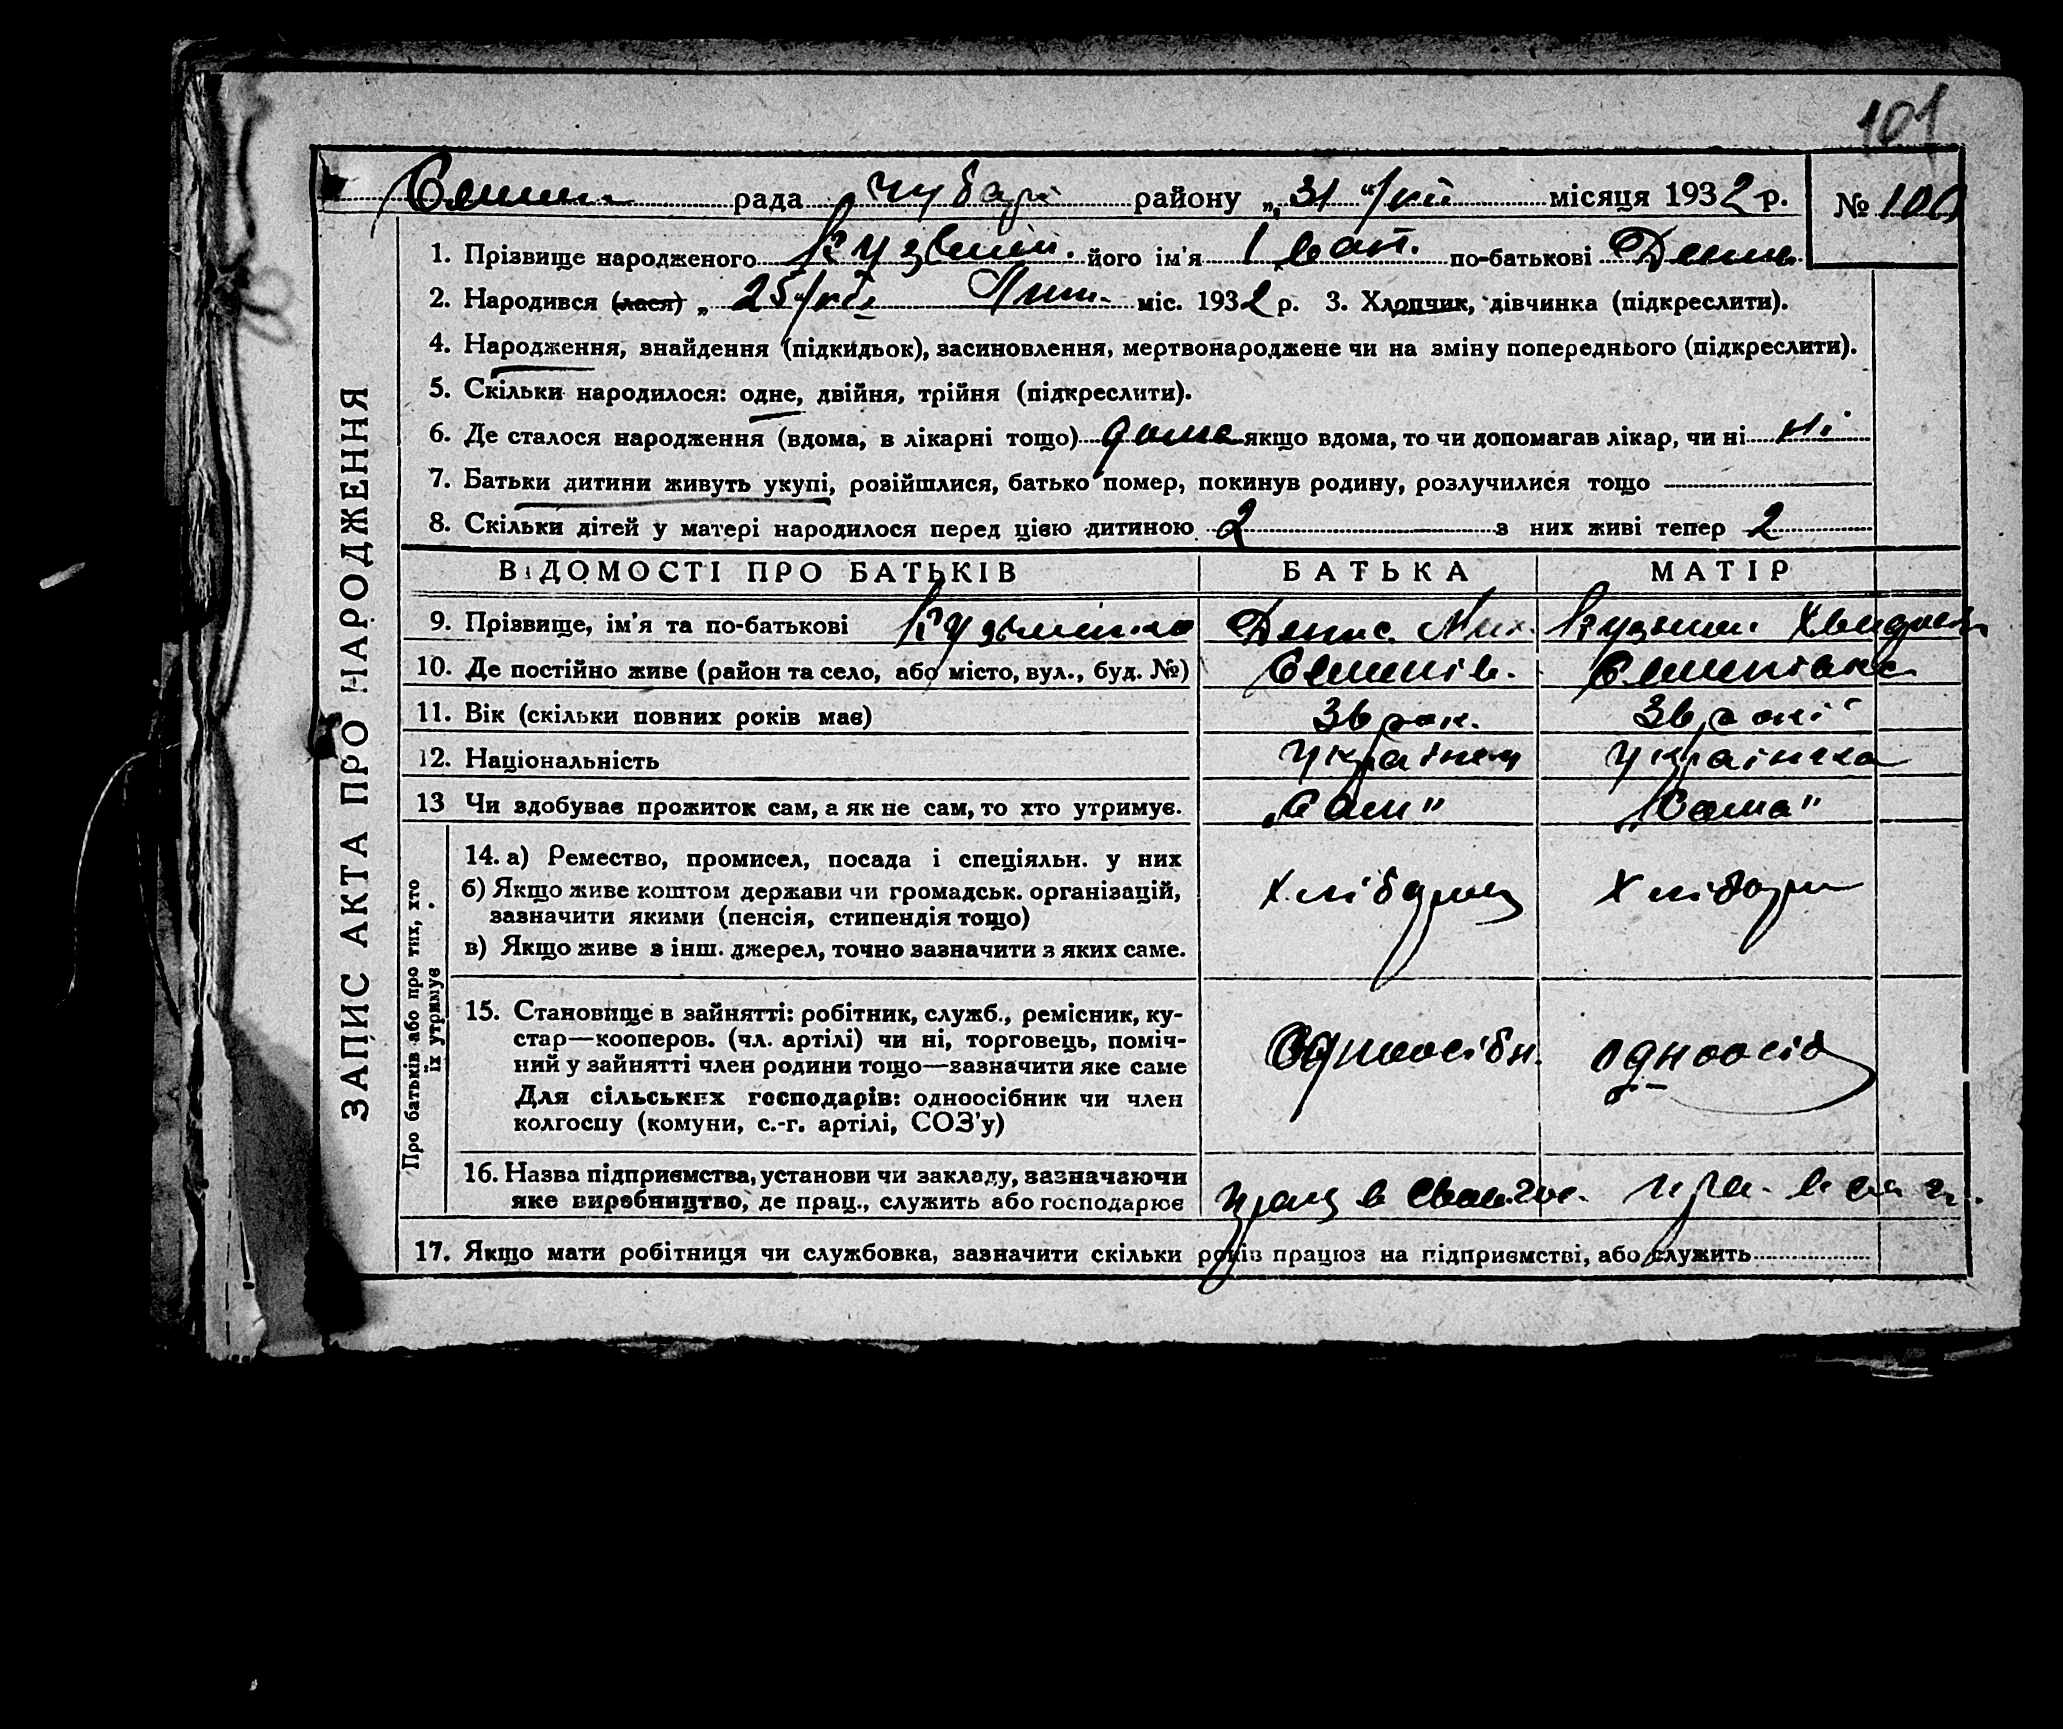 101
рада Чубарі району „ 31 " місяця 1932 р. № 100
ЗАПИС АКТА ПРО НАРОДЖЕННЯ
1. Прізвище народженого його ім'я Іват. по-батькові Денис.
2. Народився (лася) „ 25 Лип. міс. 1932 р. 3. Хлопчик, дівчинка (підкреслити).
4. Народження, знайдення (підкидьок), засиновлення, мертвонароджене чи на зміну попереднього (підкреслити).
5. Скільки народилося: одне, двійня, трійня (підкреслити).
6. Де сталося народження (вдома, в лікарні тощо) дома якщо вдома, то чи допомагав лікар, чи ні ні
7. Батьки дитини живуть укупі, розійшлися, батько помер, покинув родину, розлучилися тощо
8. Скільки дітей у матері народилося перед цією дитиною 2 з них живі тепер 2
ВІДОМОСТІ ПРО БАТЬКІВ БАТЬКА МАТІР
9. Прізвище, ім'я та по-батькові Денис Мих.
10. Де постійно живе (район та село, або місто, вул., буд. №)
11. Вік (скільки повних років має)
12. Національність українец українка
13 Чи здобуває прожиток сам, а як не сам, то хто утримує. „Сам" „Сама"
Про батьків або про тих, хто їх утримує
14. а) Ремество, промисел, посада і спеціяльн. у них
б) Якщо живе коштом держави чи громадськ. організацій,
зазначити якими (пенсія, стипендія тощо)
в) Якщо живе з інш. джерел, точно зазначити з яких саме.
Хлібороб Хлібор
15. Становище в зайнятті: робітник, служб., ремісник, ку-
стар—кооперов. (чл. артілі) чи ні, торговець, поміч-
ний у зайнятті член родини тощо—зазначити яке саме
Одноосібн. одноосіб
Для сільських господарів: одноосібник чи член
колгоспу (комуни, с.-г. артілі, СОЗ'у)
16. Назва підприємства, установи чи закладу, зазначаючи
яке виробництво, де прац., служить або господарює прац в своєм гос.
17. Якщо мати робітниця чи службовка, зазначити скільки років працює на підприємстві, або служить